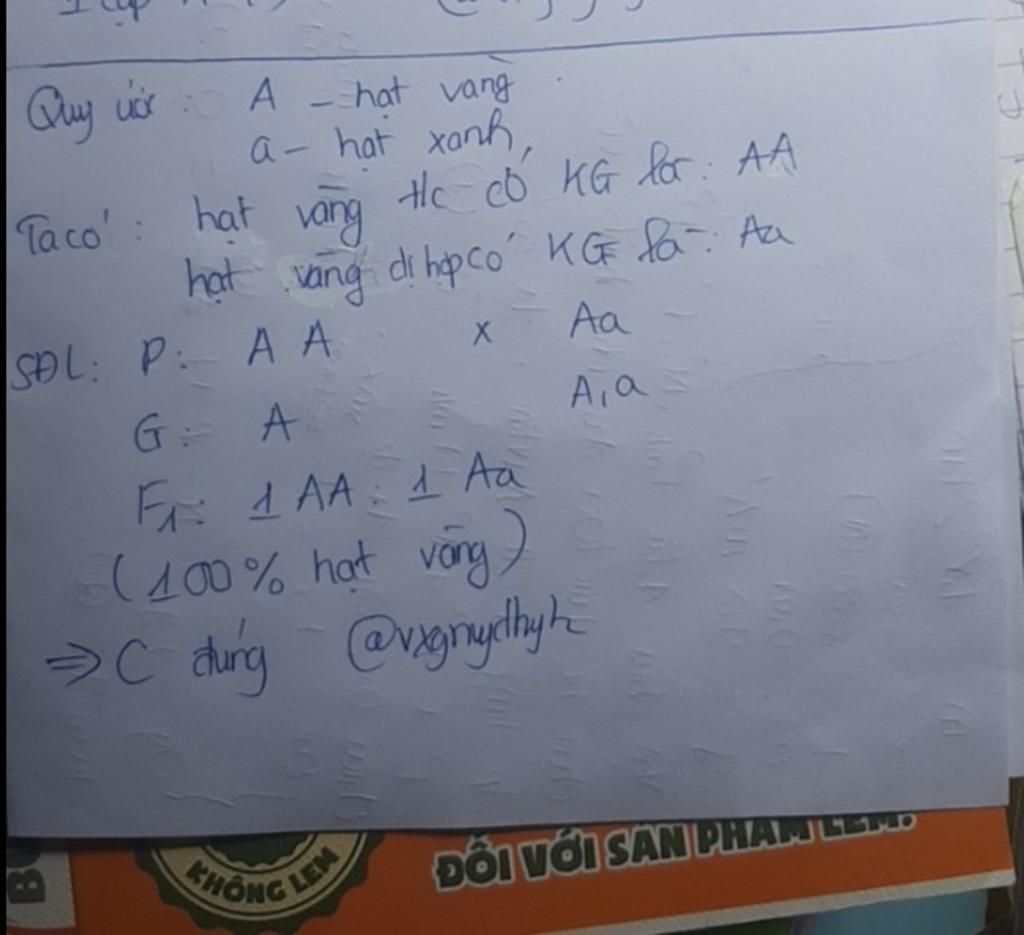 1 cặp
Quy ước : A – hạt vàng
a – hạt xanh,
Ta có : hạt vàng t/c có KG là : AA
hạt vàng dị hợp có KG là : Aa
SĐL : P : A A x Aa
G : A A, a
F1 : 1 AA : 1 Aa
(100% hạt vàng)
⇒ C đúng @vxgnydhyh
KHÔNG LEM
ĐỐI VỚI SẢN PHẨM LEM.
B